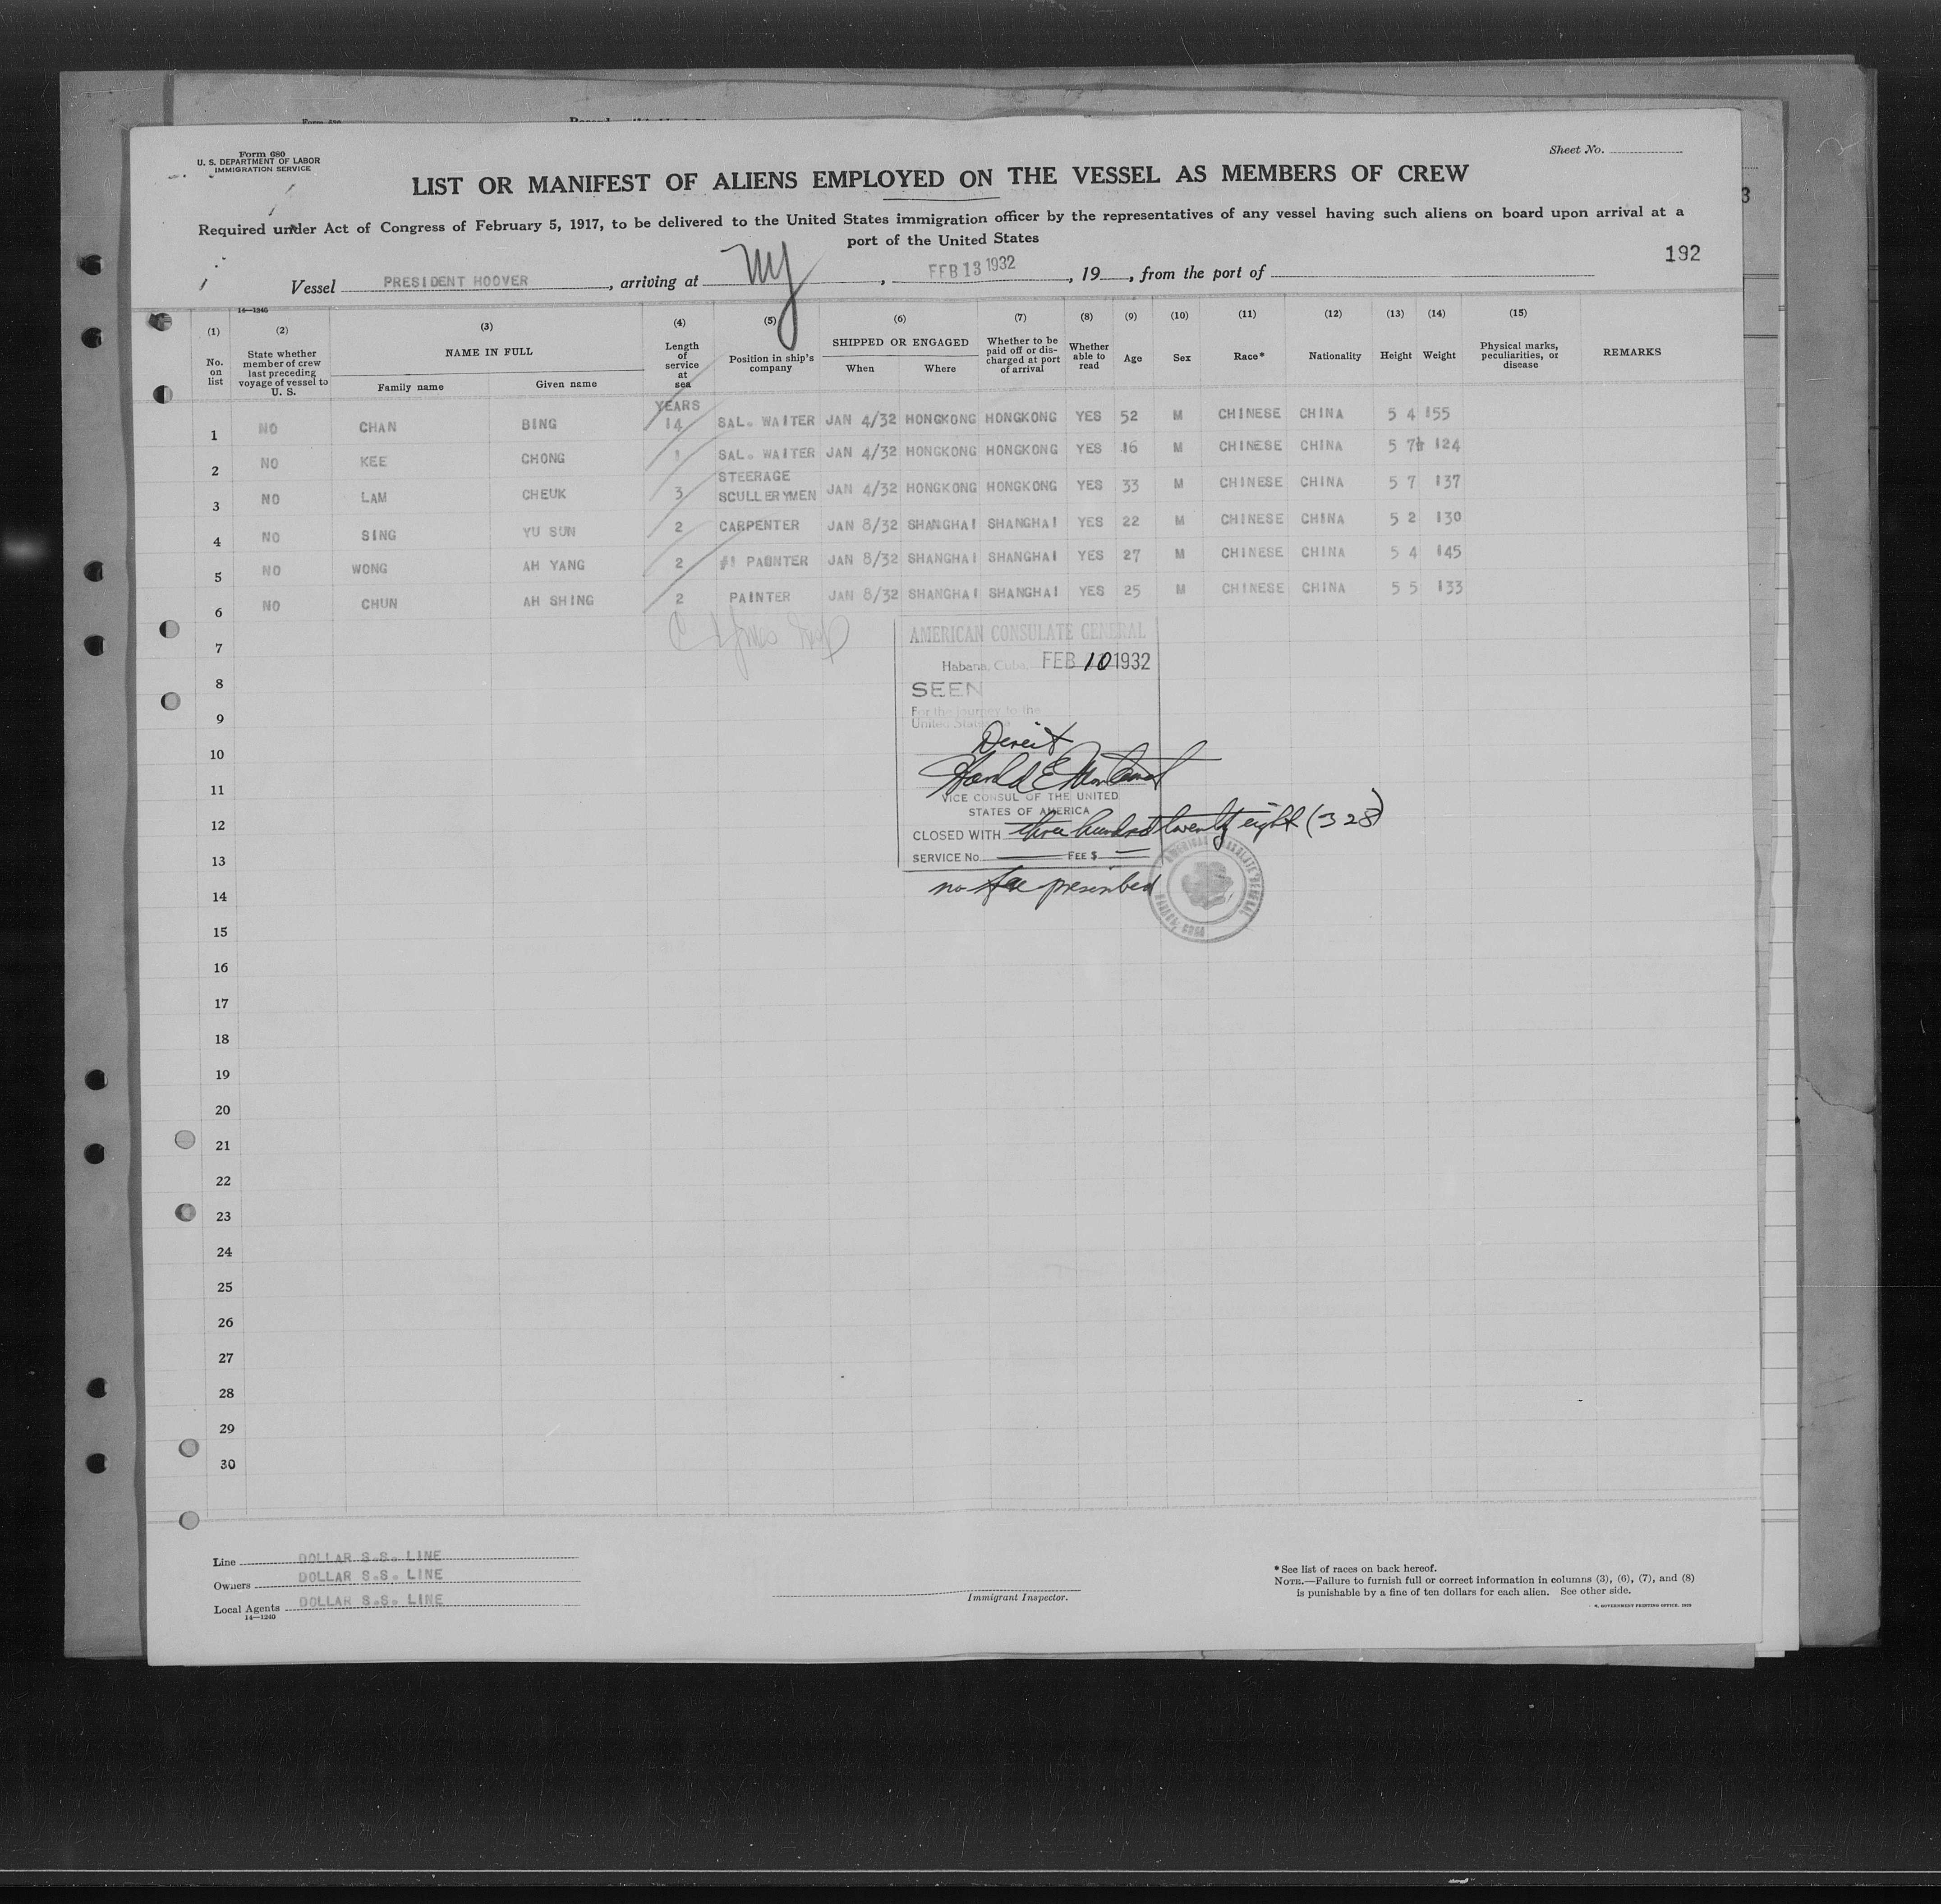 Form 680
U. S. DEPARTMENT OF LABOR
IMMIGRATION SERVICE
Sheet No.
LIST OR MANIFEST OF ALIENS EMPLOYED ON THE VESSEL AS MEMBERS OF CREW
Required under Act of Congress of February 5, 1917, to be delivered to the United States immigration officer by the representatives of any vessel having such aliens on board upon arrival at a
port of the United States
192
Vessel PRESIDENT HOOVER, arriving at NY, FEB 13 1932, 19, from the port of
14—1240
(1) (2) (3) (4) (5) (6) (7) (8) (9) (10) (11) (12) (13) (14) (15)
No. on list State whether member of crew last preceding voyage of vessel to U. S. NAME IN FULL Family name Given name Length of service at sea Position in ship's company SHIPPED OR ENGAGED When Where Whether to be paid off or discharged at port of arrival Whether able to read Age Sex Race* Nationality Height Weight Physical marks, peculiarities, or disease REMARKS
YEARS
1 NO CHAN BING 14 SAL. WAITER JAN 4/32 HONGKONG HONGKONG YES 52 M CHINESE CHINA 5 4 155
2 NO KEE CHONG 1 SAL. WAITER JAN 4/32 HONGKONG HONGKONG YES 16 M CHINESE CHINA 5 7½ 124
3 NO LAM CHEUK 3 STEERAGE SCULLERYMEN JAN 4/32 HONGKONG HONGKONG YES 33 M CHINESE CHINA 5 7 137
4 NO SING YU SUN 2 CARPENTER JAN 8/32 SHANGHAI SHANGHAI YES 22 M CHINESE CHINA 5 2 130
5 NO WONG AH YANG 2 #1 PAINTER JAN 8/32 SHANGHAI SHANGHAI YES 27 M CHINESE CHINA 5 4 145
6 NO CHUN AH SHING 2 PAINTER JAN 8/32 SHANGHAI SHANGHAI YES 25 M CHINESE CHINA 5 5 133
7
8
9
10
11
12
13
14
15
16
17
18
19
20
21
22
23
24
25
26
27
28
29
30
AMERICAN CONSULATE GENERAL
Habana, Cuba. FEB 10 1932
SEEN
For the journey to the
United States
Direct
Harold E.
VICE CONSUL OF THE UNITED
STATES OF AMERICA
CLOSED WITH three hundred twenty eight (328)
SERVICE No. FEE $
no fee prescribed
Line DOLLAR S.S. LINE
Owners DOLLAR S.S. LINE
Local Agents DOLLAR S.S. LINE
14—1240
Immigrant Inspector.
*See list of races on back hereof.
NOTE.—Failure to furnish full or correct information in columns (3), (6), (7), and (8)
is punishable by a fine of ten dollars for each alien. See other side.
GOVERNMENT PRINTING OFFICE